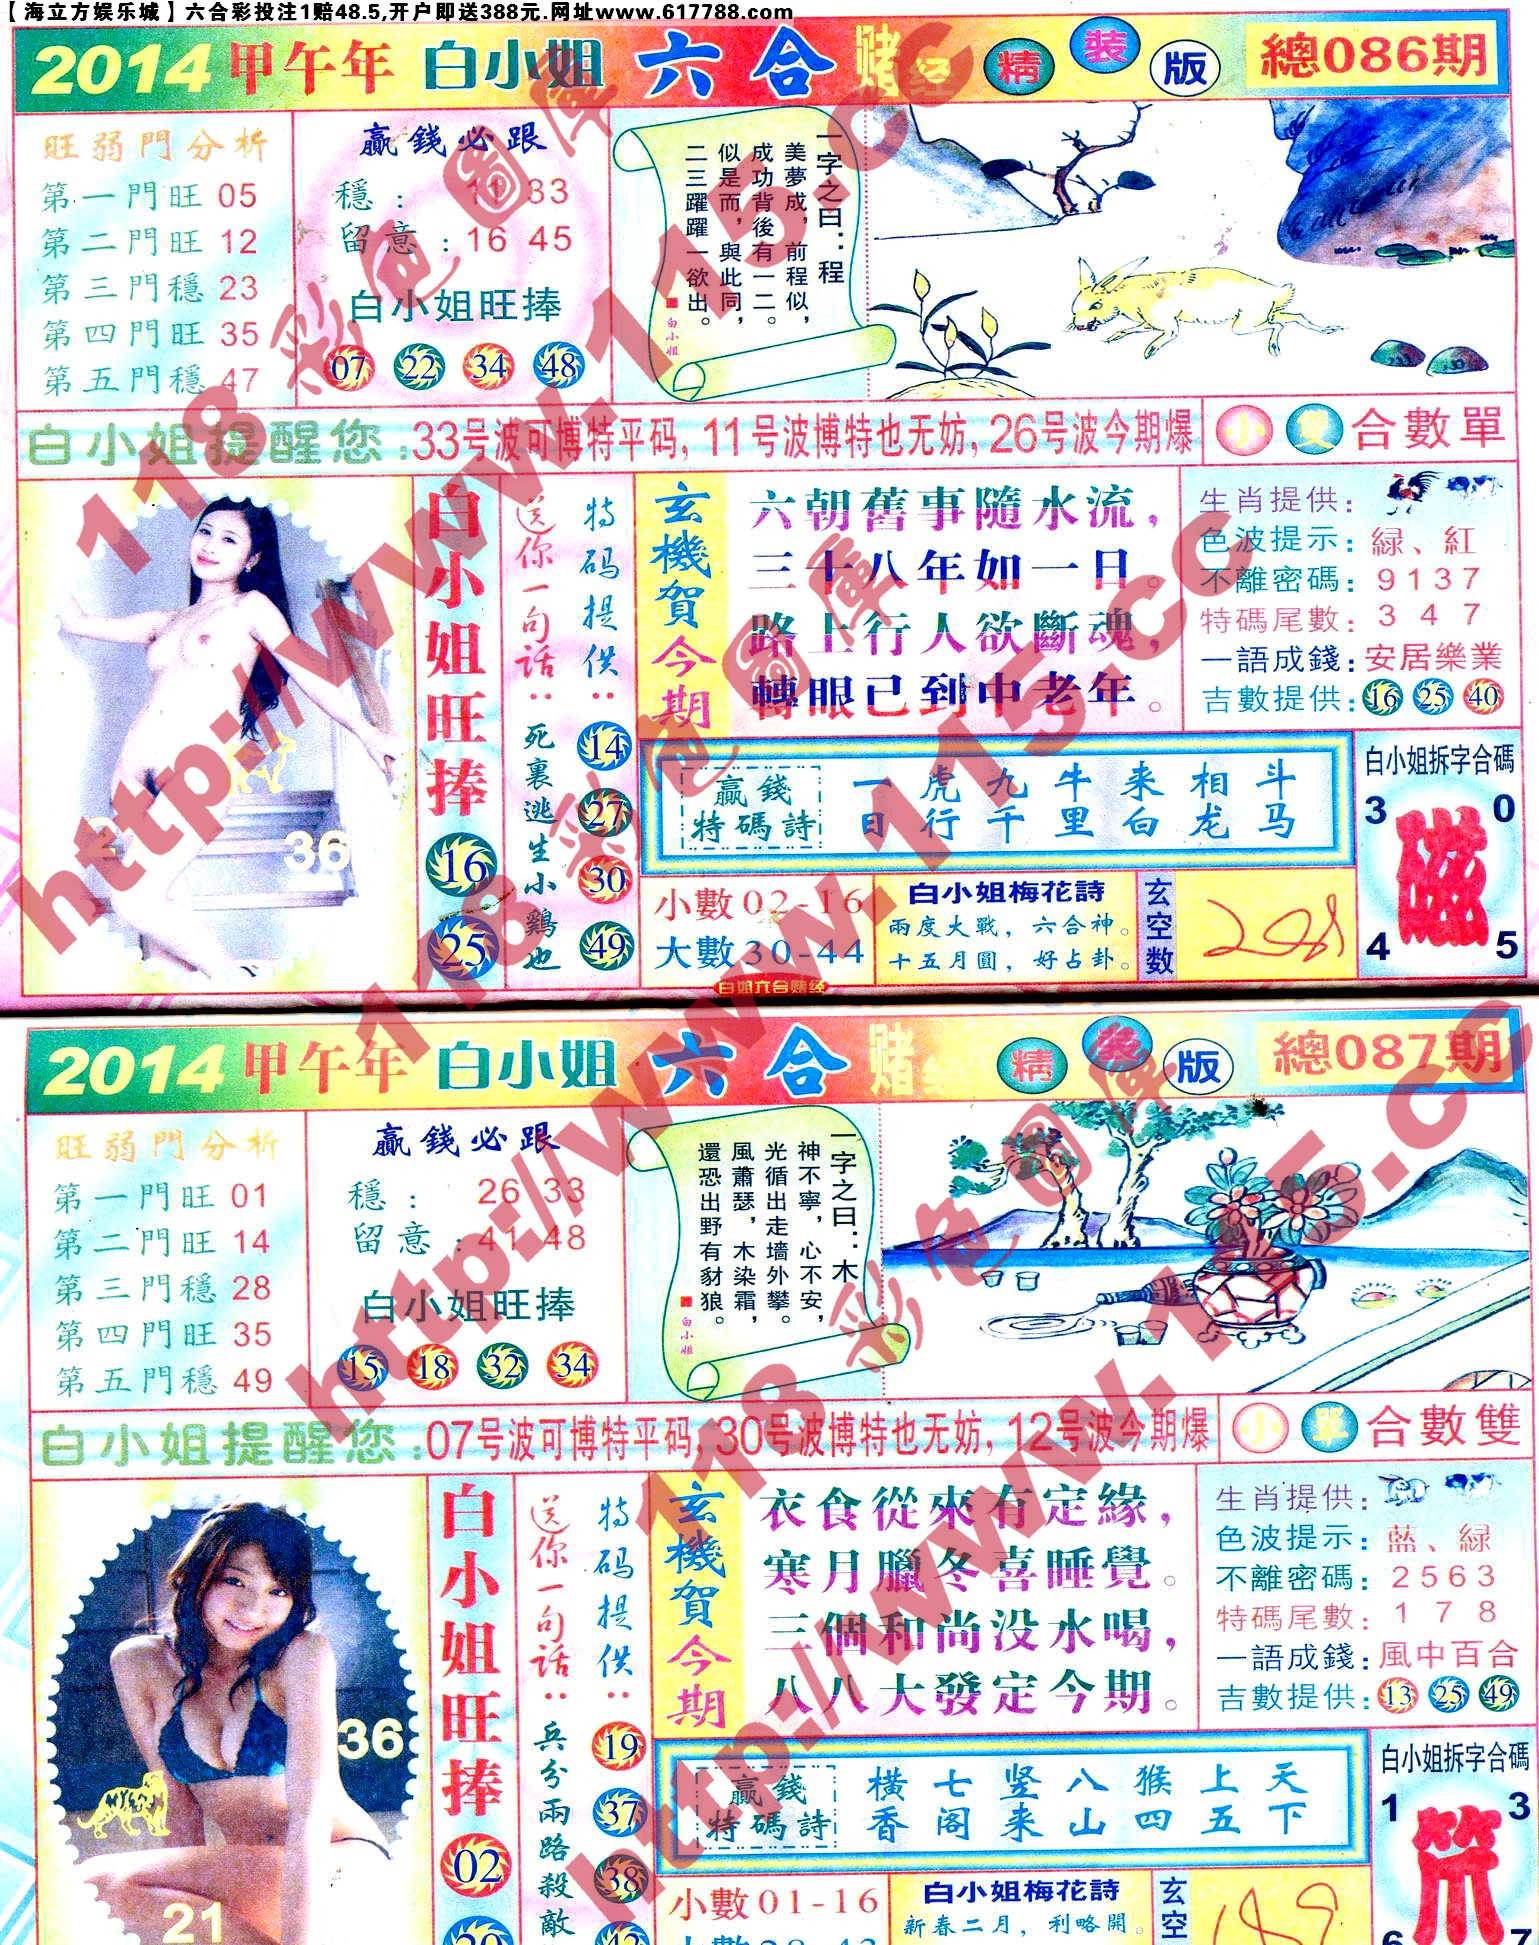 【海立方娱乐城】六合彩投注1赔48.5,开户即送388元.网址www.617788.com
2014 甲午年 白小姐 六合 赌经 精装版 總086期
旺弱門分析
第一門旺 05
第二門旺 12
第三門穩 23
第四門旺 35
第五門穩 47
贏錢必跟
穩: 11 33
留意: 16 45
白小姐旺捧
07 22 34 48
一字之曰:程
美夢成,前程似,
成功背後有一二。
似是而,與此同,
二三躍躍一欲出。
白小姐
白小姐提醒您:33号波可博特平码,11号波博特也无妨,26号波今期爆
小 雙 合數單
36
白小姐旺捧
16
25
送你一句话:死裏逃生小鷄也
特码提供:
14
27
30
49
玄機賀今期
六朝舊事隨水流,
三十八年如一日。
路上行人欲斷魂,
轉眼已到中老年。
生肖提供:
色波提示:緑、紅
不離密碼:9137
特碼尾數:3 4 7
一語成錢:安居樂業
吉數提供:16 25 40
贏錢特碼詩
一虎九牛来相斗
日行千里白龙马
白小姐拆字合碼
3 0
磁
4 5
小數02-16
大數30-44
白小姐梅花詩
兩度大戰,六合神。
十五月圓,好占卦。
玄空数
白姐六合赌经
2014 甲午年 白小姐 六合 赌经 精装版 總087期
旺弱門分析
第一門旺 01
第二門旺 14
第三門穩 28
第四門旺 35
第五門穩 49
贏錢必跟
穩: 26 33
留意: 41 48
白小姐旺捧
15 18 32 34
一字之曰:木
神不寧,心不安,
光循出走墻外攀。
風蕭瑟,木染霜,
還恐出野有豺狼。
白小姐
白小姐提醒您:07号波可博特平码,30号波博特也无妨,12号波今期爆
小 單 合數雙
36
21
白小姐旺捧
02
送你一句话:兵分兩路殺敵
特码提供:
19
37
38
玄機賀今期
衣食從來有定緣,
寒月臘冬喜睡覺。
三個和尚没水喝,
八八大發定今期。
生肖提供:
色波提示:藍、緑
不離密碼:2563
特碼尾數:1 7 8
一語成錢:風中百合
吉數提供:13 25 49
贏錢特碼詩
横七竖八猴上天
香阁来山四五下
白小姐拆字合碼
1 3
笊
6 7
小數01-16
白小姐梅花詩
新春二月,利略開。
玄空
118彩色圖庫
http://www.115.cc
118彩色圖庫
http://www.115.cc
118彩色圖庫
http://www.115.cc